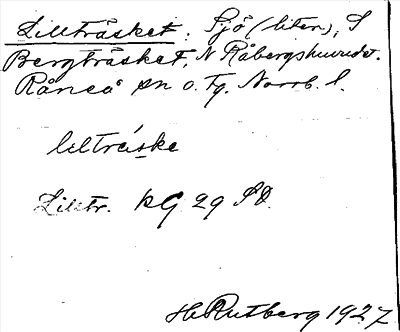 Lillträsket: Sjö (liten), S
Bergträsket, N Råbergshuvudet.
Råneå sn o. Tg. Norrb. l.
lelträske
Lilltr. KG 29 SO.
H. Rutberg 1927